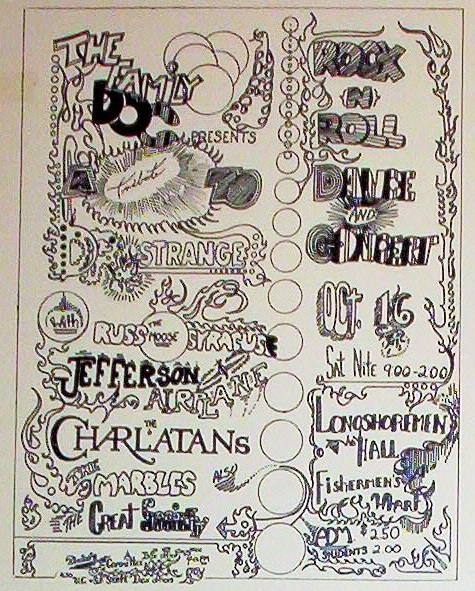 THE
FAMILY
DOG
PRESENTS
A
Tribute
TO
DR.
STRANGE
With
RUSS THE MOOSE SYRACUSE
JEFFERSON
AIRPLANE
THE
CHARLATANS
THE
MARBLES
ALSO
THE GREAT SOCIETY
ROCK
N
ROLL
DANCE
AND
CONCERT
OCT. 16
Sat Nite 900-200
LONGSHOREMEN'S
HALL
FISHERMEN'S
WHARF
ADM $2.50
STUDENTS 2.00